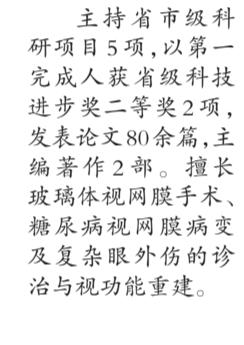 主持省市级科
研项目5项，以第一
完成人获省级科技
进步奖二等奖2项，
发表论文80余篇，主
编著作2部。擅长
玻璃体视网膜手术、
糖尿病视网膜病变
及复杂眼外伤的诊
治与视功能重建。